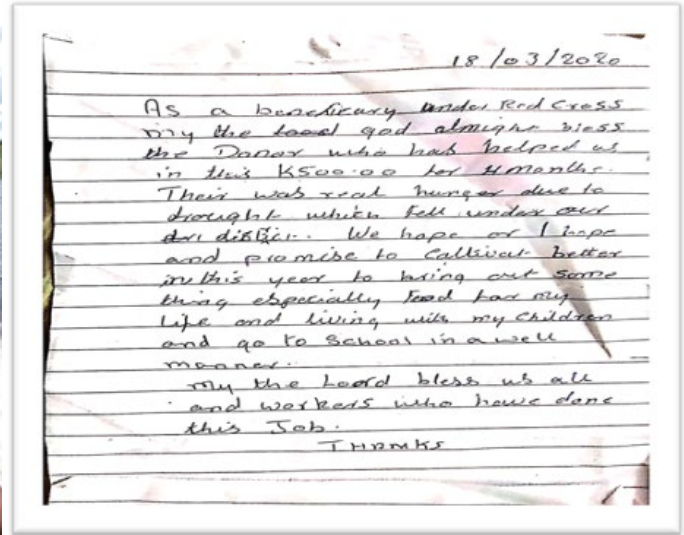 18/03/2020
As a beneficary under Red Cross
my the Loord god almight bless
the Donor who has helped us
in this K500.00 for 4 months.
Their was real hunger due to
drought which fell under our
dri district. We hope or I hope
and promise to Caltivat better
in this year to bring out some
thing especially food for my
Life and living with my children
and go to School in a well
manner.
my the Loord bless us all
and workers who have done
this Job.
THANKS